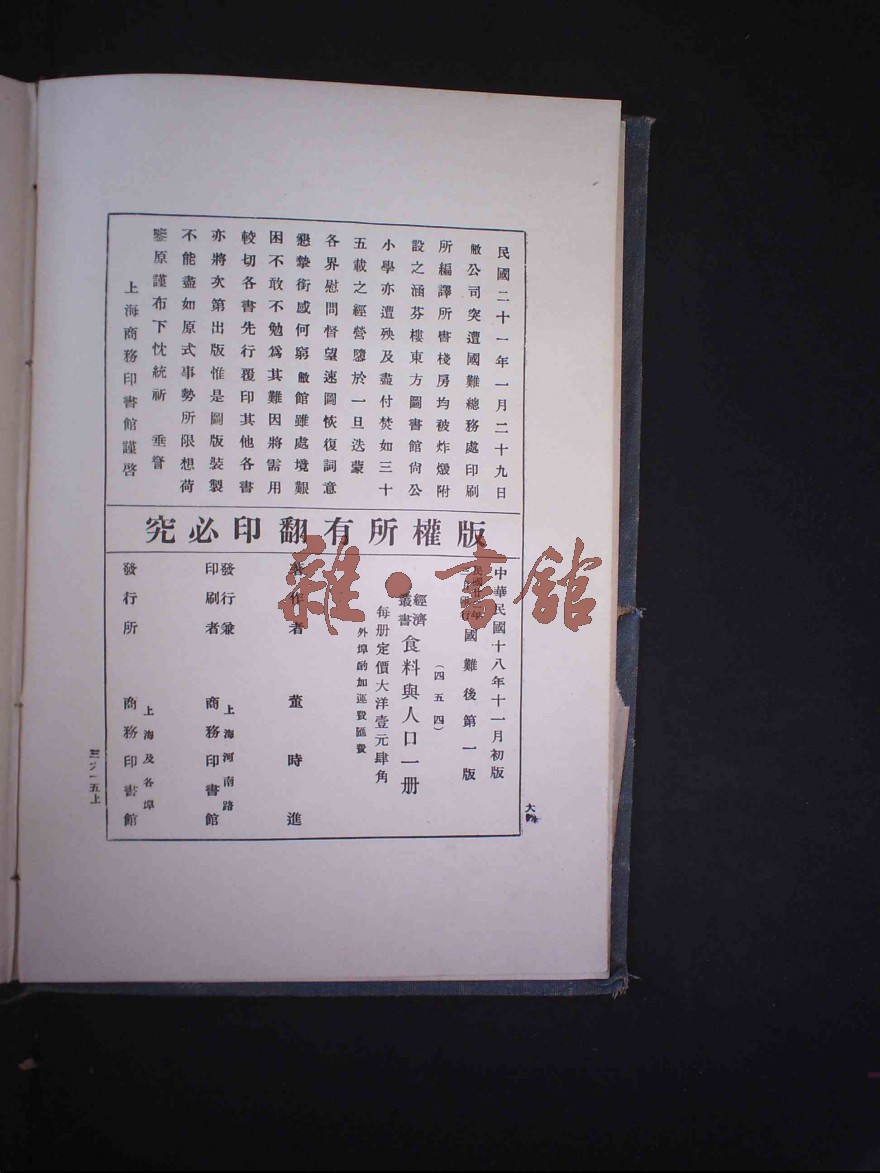 民國二十一年一月二十九日
敝公司突遭國難總務處印刷
所編譯所書棧房均被炸燬附
設之涵芬樓東方圖書館尙公
小學亦遭殃及盡付焚如三十
五載之經營隳於一旦迭蒙
各界慰問督望速圖恢復詞意
懇摯銜感何窮敝館雖處境艱
困不敢不勉爲其難因將需用
較切各書先行覆印其他各書
亦將次第出版惟是圖版裝製
不能盡如原式事勢所限想荷
鑒原謹布下忱統祈 垂詧
上海商務印書館謹啓
版權所有翻印必究
中華民國十八年十一月初版
國難後第一版
(四五四)
經濟叢書 食料與人口一册
每册定價大洋壹元肆角
外埠酌加運費匯費
著作者 董時進
發行兼印刷者 上海河南路 商務印書館
發行所 上海及各埠 商務印書館
雜·書館